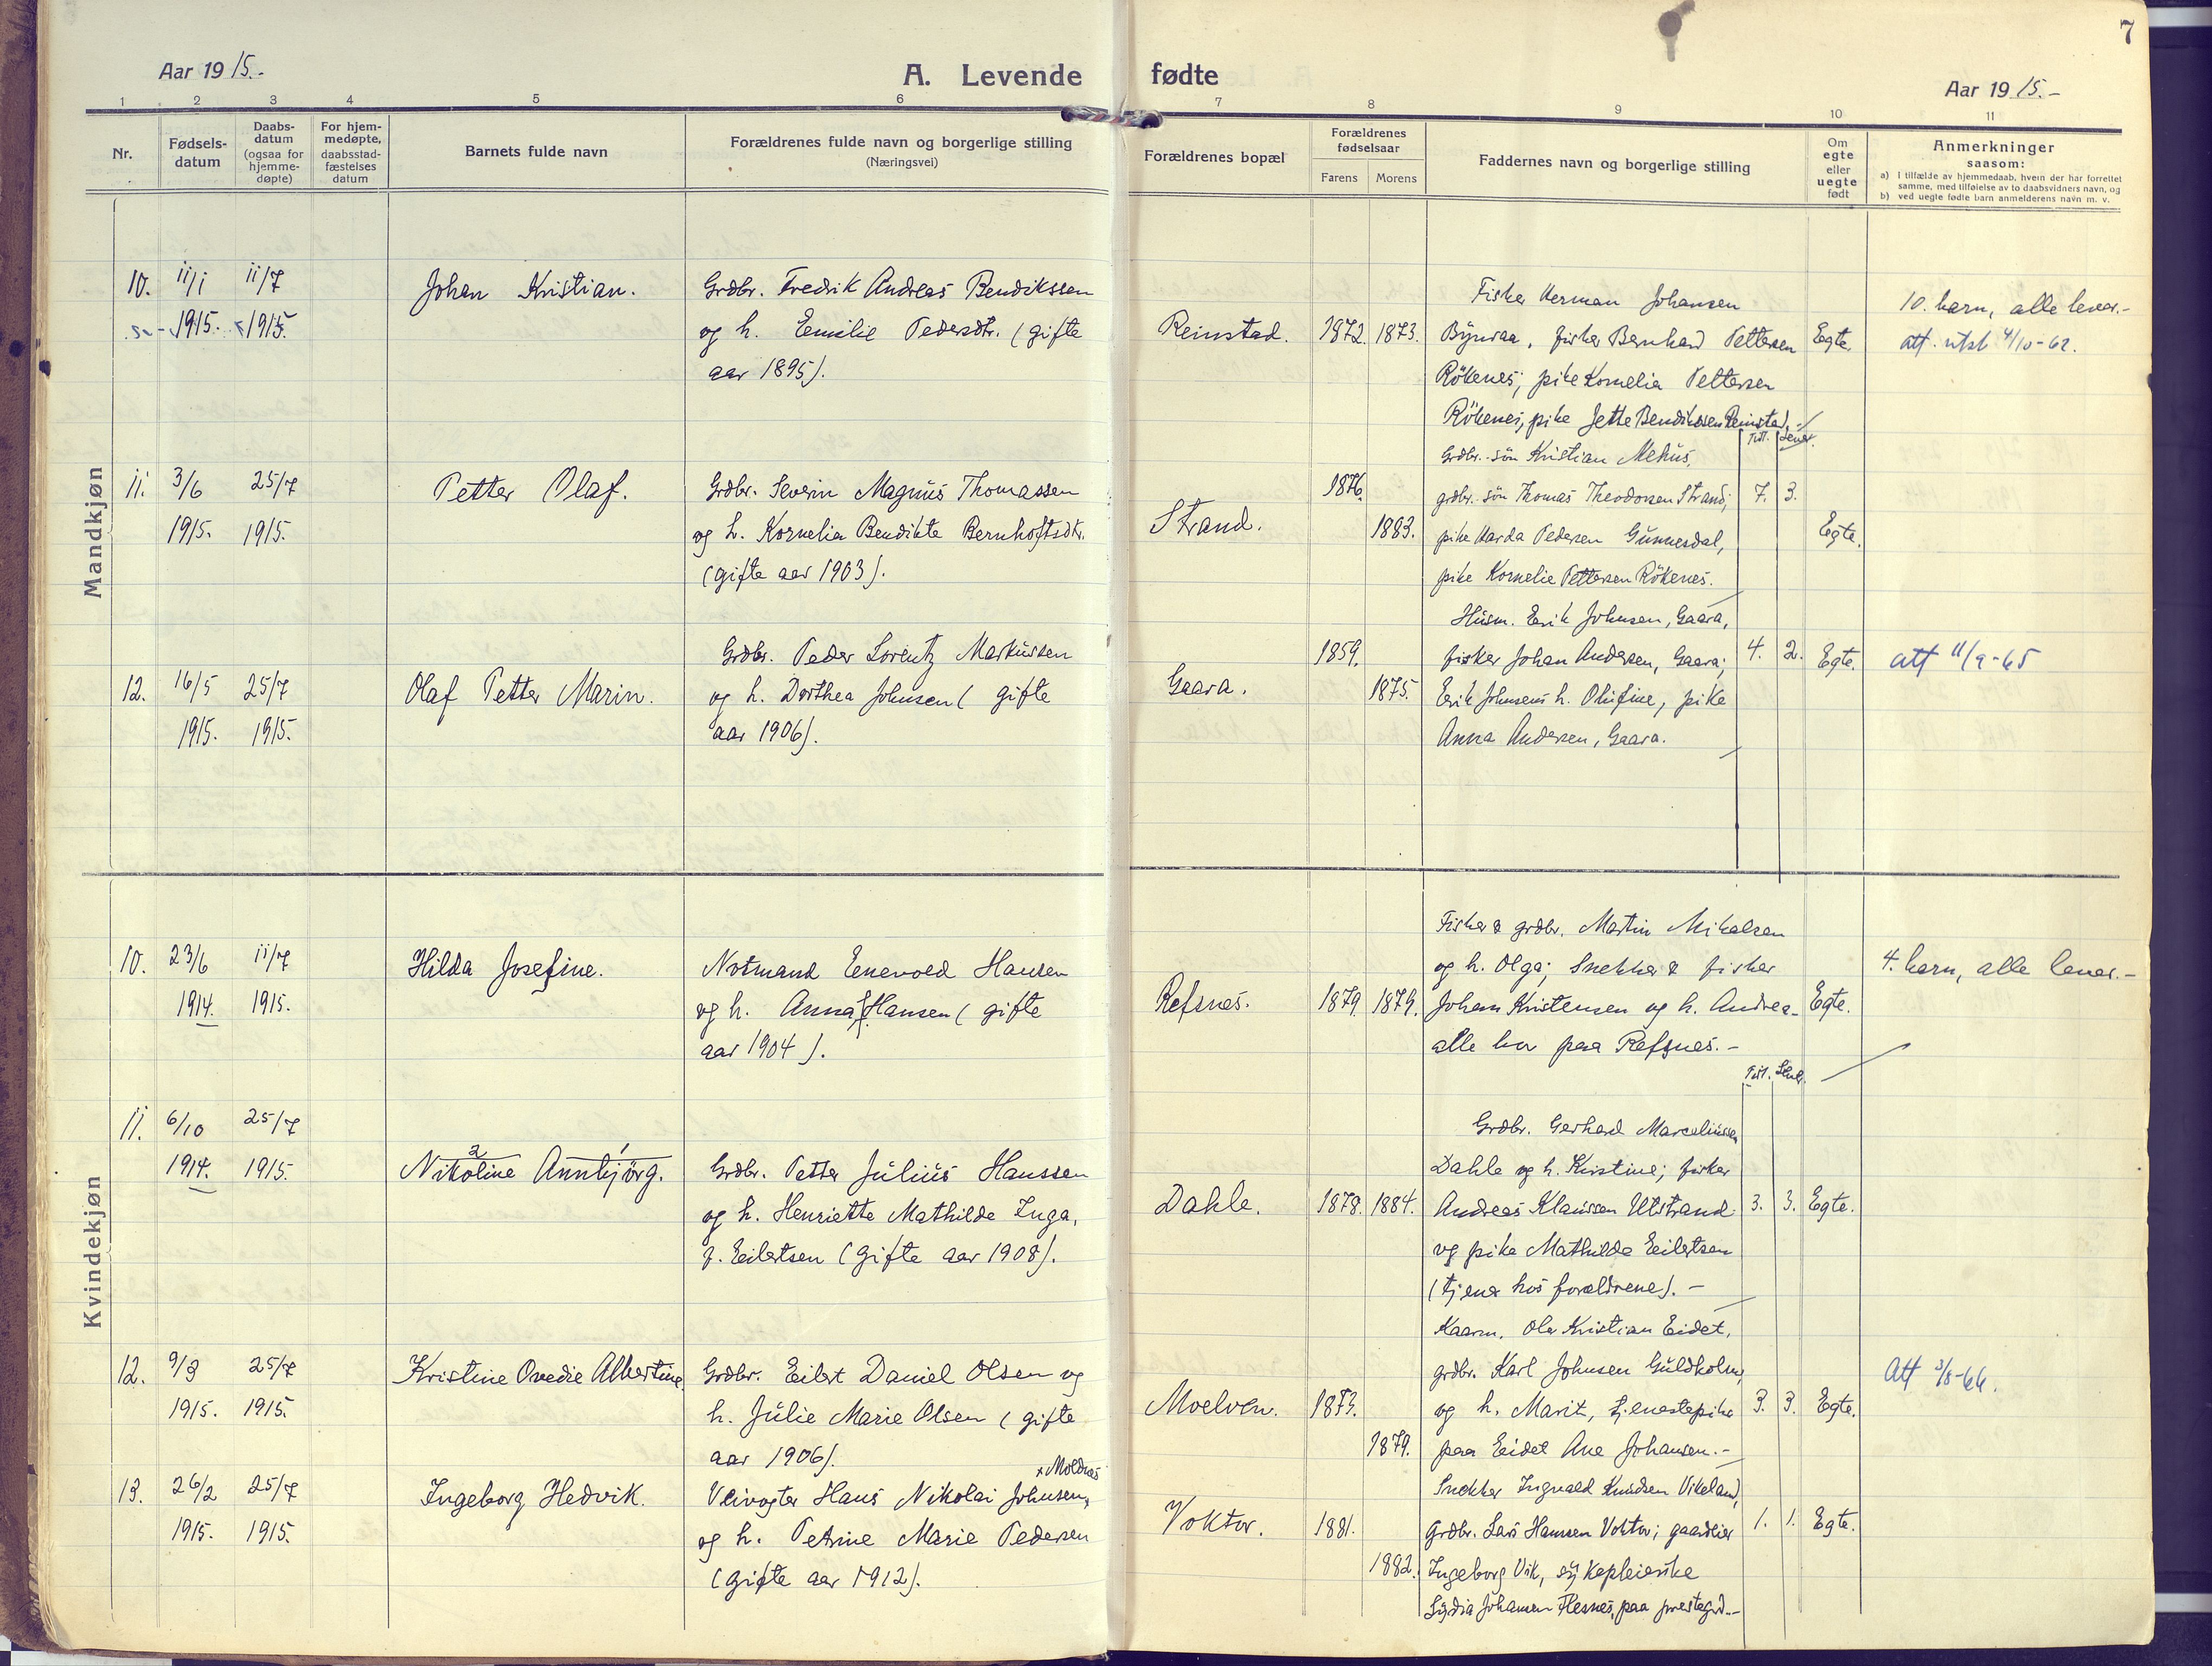 7
Aar 1915.-
A. Levende fødte
Aar 1915.-
1 2 3 4 5 6 7 8 9 10 11
Nr.
Fødsels-
datum
Daabs-
datum
(ogsaa for
hjemme-
døpte)
For hjem-
medøpte,
daabsstad-
fæstelses
datum
Barnets fulde navn
Forældrenes fulde navn og borgerlige stilling
(Næringsvei)
Forældrenes bopæl
Forældrenes
fødselsaar
Farens Morens
Faddernes navn og borgerlige stilling
Om
egte
eller
uegte
født
Anmerkninger
saasom:
a) I tilfælde av hjemmedaab, hvem der har forrettet
samme, med tilføielse av to daabsvidners navn, og
b) ved uegte fødte barn anmelderens navn m. v.
Mandkjøn
10. 11/1 11/7
1915. 1915.
Johan Kristian.
Grdbr. Fredrik Andreas Bendikssen
og h. Emilie Pedersdtr. (gifte
aar 1895).
Reinstad. 1872. 1873.
Fisker Herman Johansen
Bynraa, fisker Bernhard Pettersen
Rökenes; pike Kornelia Pettersen
Rökenes, pike Jette Bendiksen Reinstad.-
Egte.
10. barn, alle lever.-
att. utst 4/10-62.
Föt. Lever.
11. 3/6 25/7
1915. 1915.
Petter Olaf.
Grdbr. Severin Magnus Thomassen
og h. Kornelia Bendikte Bernhoftsdtr.
(gifte aar 1903).
Strand. 1876. 1883.
Grdbr. sön Kristian Mehus,
grdbr. sön Thomas Theodorsen Strand;
pike Harda Pedersen Gunnesdal,
pike Kornelie Pettersen Rökenes.
7. 3. Egte.
12. 16/5 25/7
1915. 1915.
Olaf Petter Marin.
Grdbr. Peder Lorentz Markussen
og h. Dorthea Johnsen (gifte
aar 1906).
Gaara. 1859. 1875.
Husm. Erik Johnsen, Gaara,
fisker Johan Andersen, Gaara;
Erik Johnsens h. Olufine, pike
Anna Andersen, Gaara.
4. 2. Egte.
att 11/9-65
Kvindekjøn
10. 23/6 11/7
1914. 1915.
Hilda Josefine.
Notmand Enevold Hansen
og h. Anna Hansen (gifte
aar 1904).
Refsnes. 1879. 1879.
Fisker & grdbr. Martin Mikalsen
og h. Olga; Snekker & fisker
Johan Kristensen og h. Andrea-
alle bor paa Refsnes.-
Egte.
4. barn, alle lever.-
Föt. Lever.
11. 6/10 25/7
1914. 1915.
2 1
Nikoline Annbjörg.
Grdbr. Petter Julius Hanssen
og h. Henriette Mathilde Inga,
f. Eilertsen (gifte aar 1908).
Dahle. 1878. 1884.
Grdbr. Gerhard Marceliussen
Dahle og h. Kristine; fisker
Andreas Klaussen Utstrand
og pike Mathilde Eilertsen
(tjener hos forældrene).-
3. 3. Egte.
12. 9/3 25/7
1915. 1915.
Kristine Ovedie Albertine.
Grdbr. Eilert Daniel Olsen og
h. Julie Marie Olsen (gifte
aar 1906).
Moelven. 1873. 1879.
Kaarm. Ole Kristian Eidet,
grdbr. Karl Johnsen Guldholm,
og h. Marit, tjenestepike
paa Eidet Ane Johansen.-
3. 3. Egte.
Att 3/8-66.
13. 26/2 25/7
1915. 1915.
Ingeborg Hedvik.
x Moldnes
Veivogter Hans Nikolai Johnsen x
og h. Petrine Marie Pedersen
(gifte aar 1912).
Voktor. 1881. 1882.
Snekker Ingvald Knudsen Vikeland,
Grdbr. Lars Hansen Voktor; gaardeier
Ingeborg Vik, sykepleierske
Lydia Johansen Flesnes, paa prestegrd.-
1. 1. Egte.